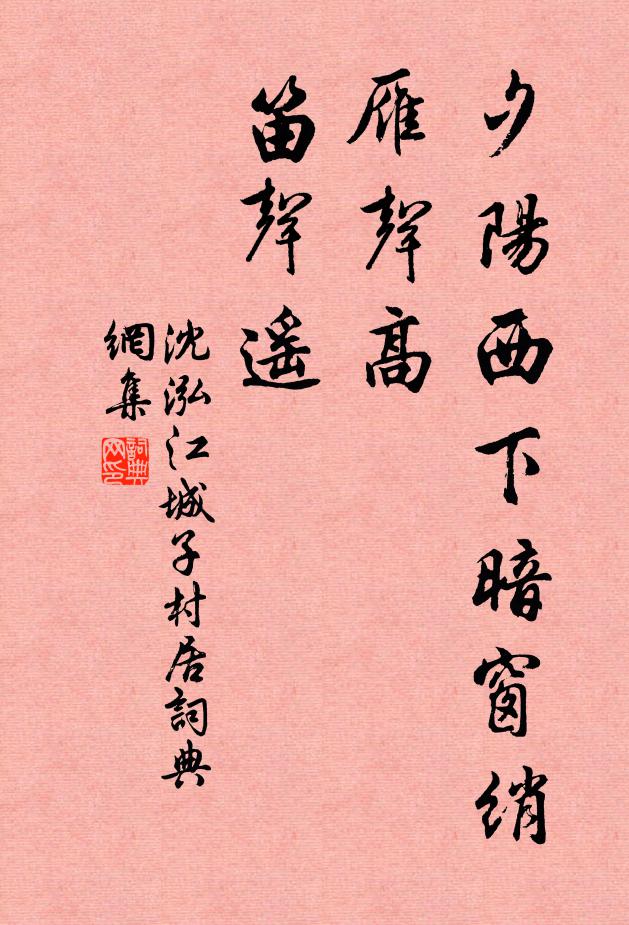 夕陽西下暗窗綃
雁聲高
笛聲遙
沈泓江城子村居詞典
網集
詞典
网印